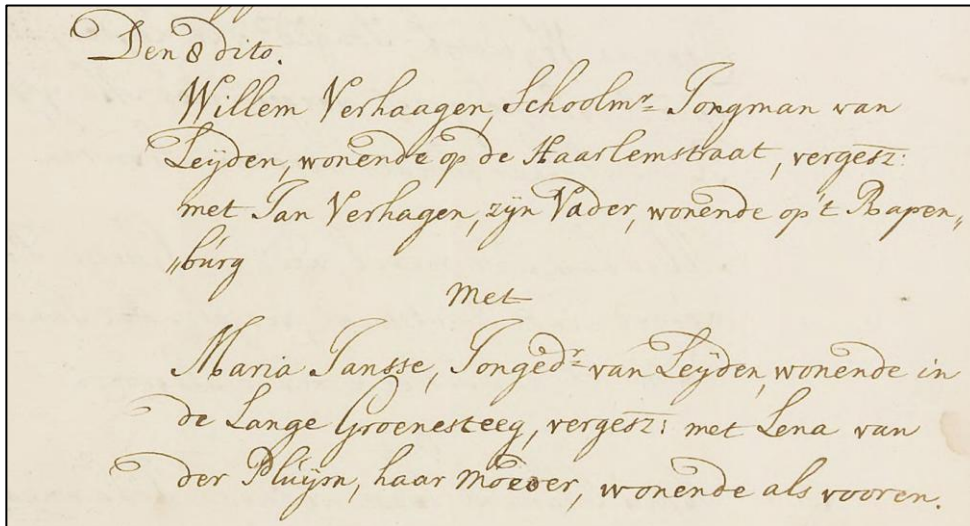 Den 8 dito.
Willem Verhaagen, Schoolmr Jongman van
Leÿden, wonende op de Haarlemstraat, vergesz:
met Jan Verhagen, zÿn Vader, wonende op 't Rapen„
„burg
Met
Maria Jansse, Jongedr van Leÿden, wonende in
de Lange Groenesteeg, vergesz: met Lena van
der Pluÿm, haar Moeder, wonende als vooren.